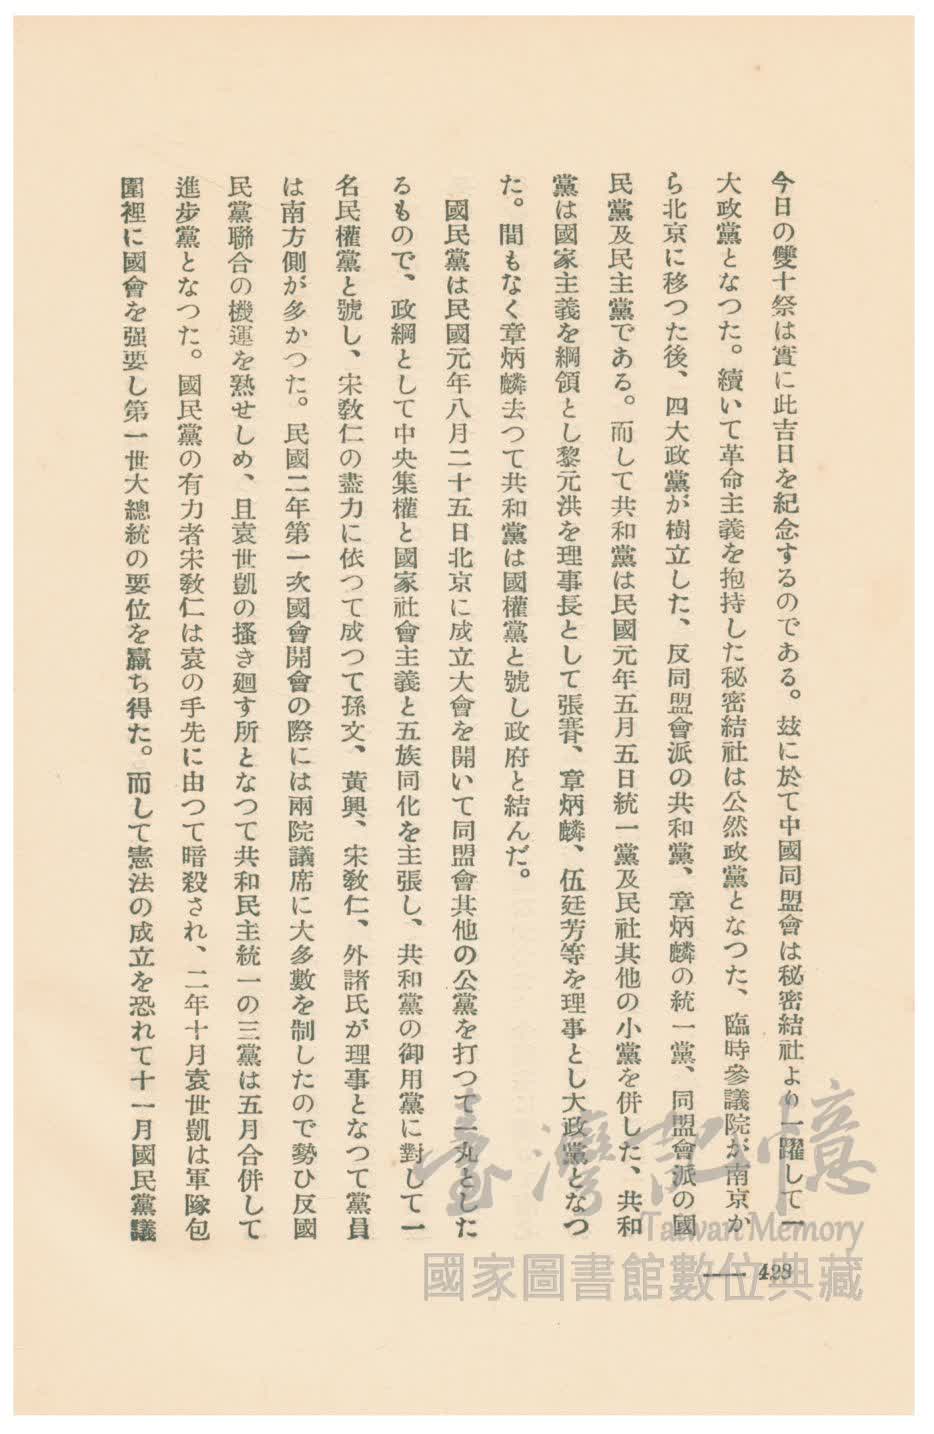 今日の雙十祭は實に此吉日を紀念するのである。玆に於て中國同盟會は秘密結社より一躍して一
大政黨となつた。續いて革命主義を抱持した秘密結社は公然政黨となつた、臨時參議院が南京か
ら北京に移つた後、四大政黨が樹立した、反同盟會派の共和黨、章炳麟の統一黨、同盟會派の國
民黨及民主黨である。而して共和黨は民國元年五月五日統一黨及民社其他の小黨を併した、共和
黨は國家主義を綱領とし黎元洪を理事長として張謇、章炳麟、伍廷芳等を理事とし大政黨となつ
た。間もなく章炳麟去つて共和黨は國權黨と號し政府と結んだ。
國民黨は民國元年八月二十五日北京に成立大會を開いて同盟會其他の公黨を打つて一丸とした
るもので、政綱として中央集權と國家社會主義と五族同化を主張し、共和黨の御用黨に對して一
名民權黨と號し、宋敎仁の盡力に依つて成つて孫文、黃興、宋敎仁、外諸氏が理事となつて黨員
は南方側が多かつた。民國二年第一次國會開會の際には兩院議席に大多數を制したので勢ひ反國
民黨聯合の機運を熟せしめ、且袁世凱の搔き廻す所となつて共和民主統一の三黨は五月合併して
進步黨となつた。國民黨の有力者宋敎仁は袁の手先に由つて暗殺され、二年十月袁世凱は軍隊包
圍裡に國會を强要し第一世大總統の要位を贏ち得た。而して憲法の成立を恐れて十一月國民黨議
— 428
臺灣記憶
Taiwan Memory
國家圖書館數位典藏